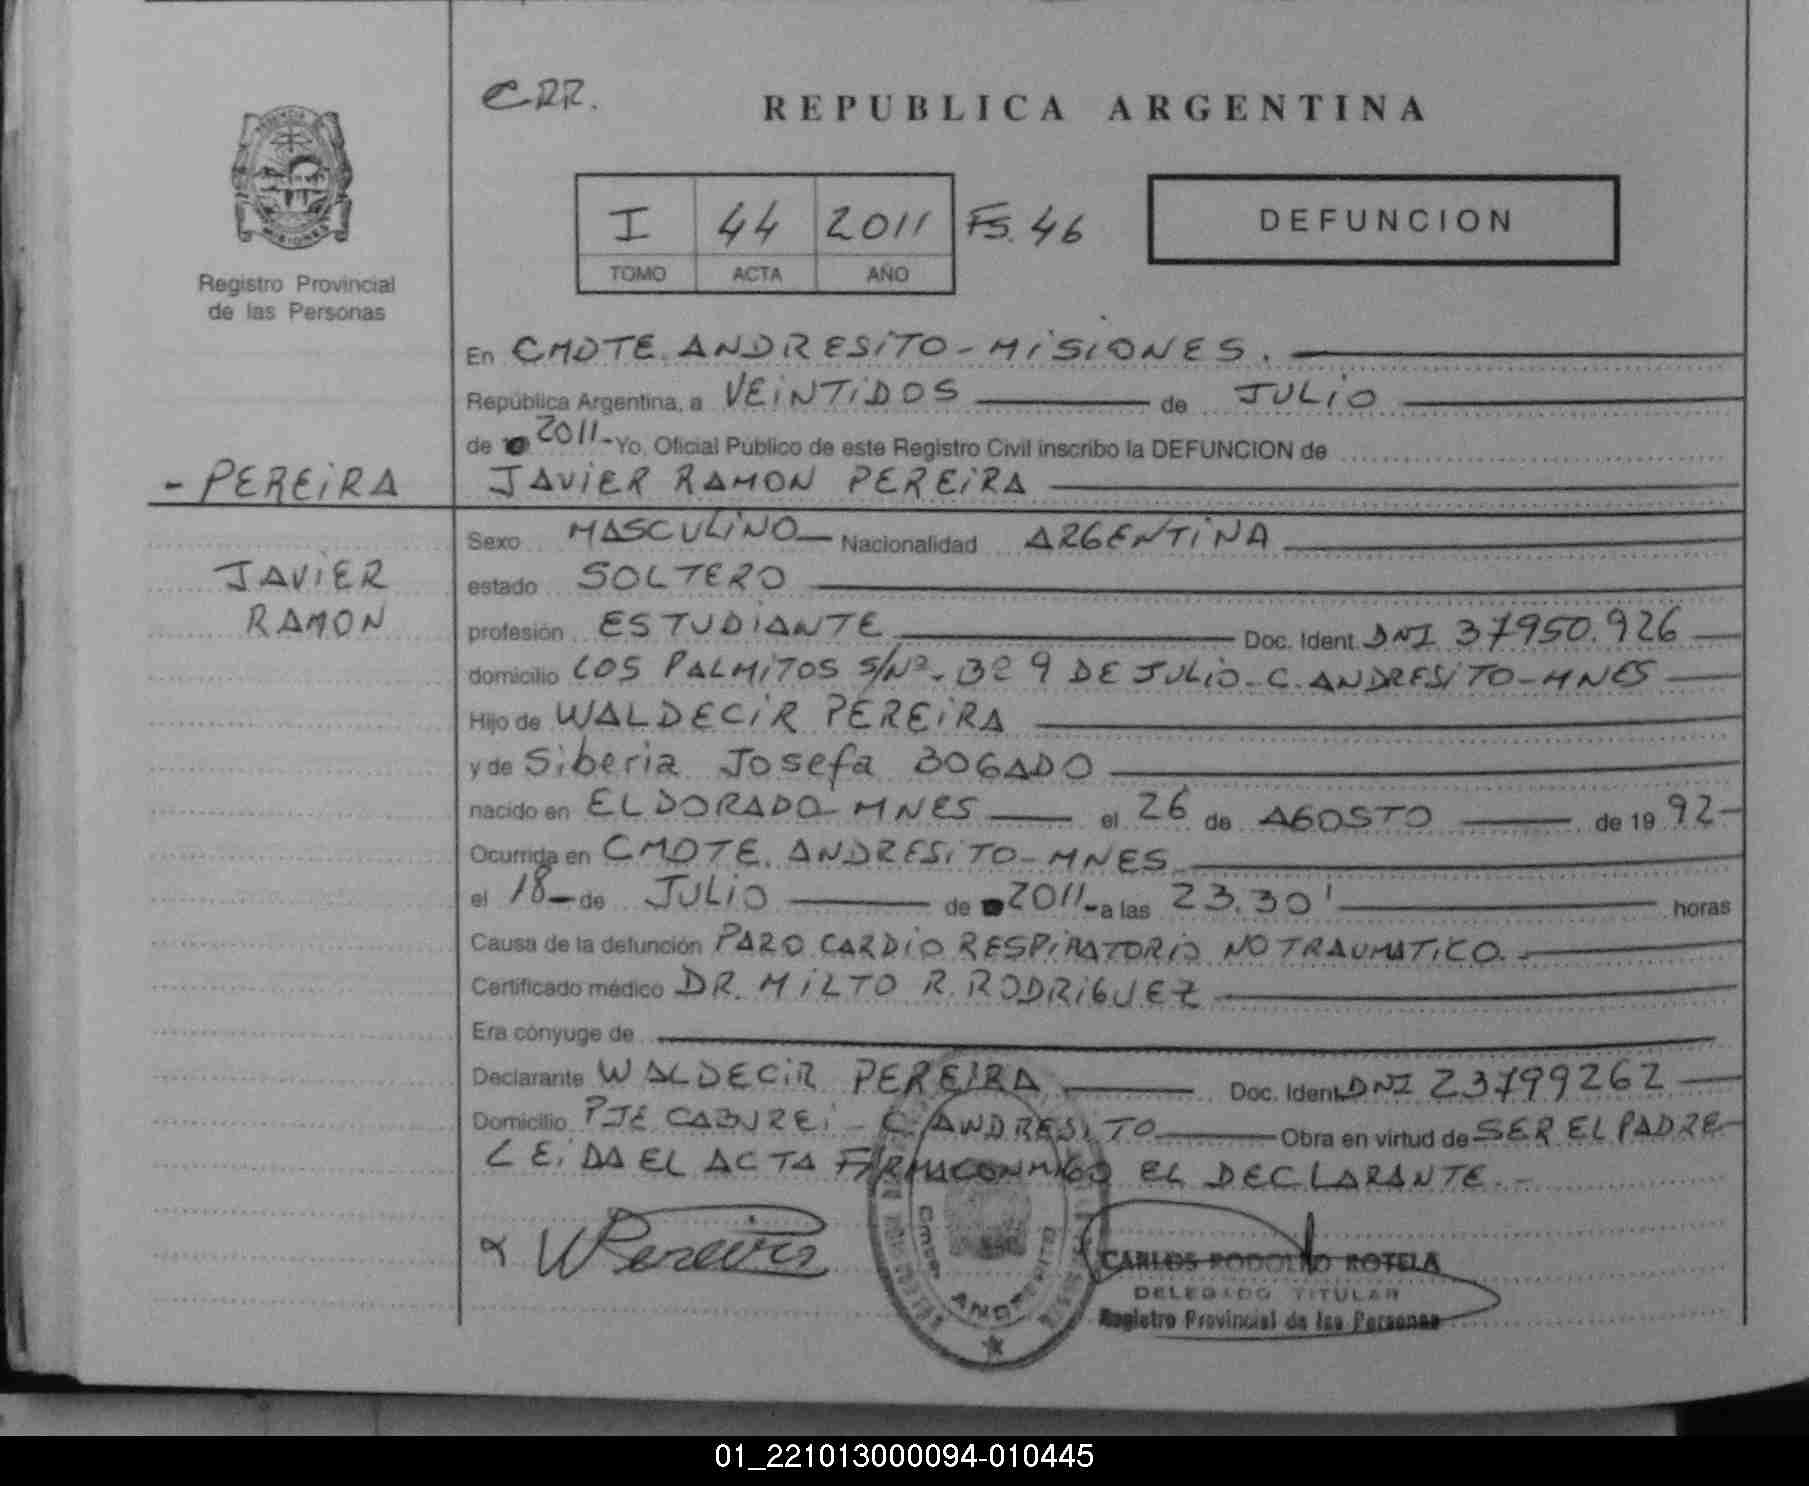 CRR.
REPUBLICA ARGENTINA
I 44 2011 FS. 46
TOMO ACTA AÑO
DEFUNCION
MISIONES
Registro Provincial
de las Personas
En CMDTE. ANDRESITO - MISIONES.
República Argentina, a VEINTIDOS de JULIO
de 2011- Yo, Oficial Público de este Registro Civil inscribo la DEFUNCION de
- PEREIRA
JAVIER RAMON PEREIRA
Sexo MASCULINO Nacionalidad ARGENTINA
JAVIER
RAMON
estado SOLTERO
profesión ESTUDIANTE Doc. Ident. DNI 37950.926
domicilio LOS PALMITOS S/Nº. Bº 9 DE JULIO - C. ANDRESITO - MNES
Hijo de WALDECIR PEREIRA
y de Siberia Josefa BOGADO
nacido en ELDORADO - MNES el 26 de AGOSTO de 19 92-
Ocurrida en CMDTE. ANDRESITO - MNES
el 18 de JULIO de 2011- a las 23.30' horas
Causa de la defunción PARO CARDIO RESPIRATORIO NO TRAUMATICO.
Certificado médico DR. MILTO R. RODRIGUEZ
Era cónyuge de
Declarante WALDECIR PEREIRA Doc. Ident. DNI 23799262
Domicilio PJE CABUREI - C. ANDRESITO Obra en virtud de SER EL PADRE-
LEIDA EL ACTA FIRMA CONMIGO EL DECLARANTE.-
WPereira
CARLOS RODOLFO ROTELA
DELEGADO TITULAR
Registro Provincial de las Personas
01_221013000094-010445